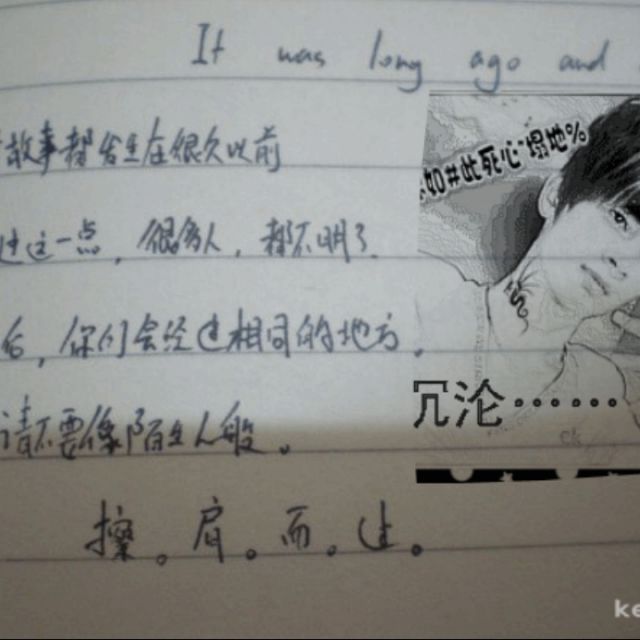 It was long ago and
故事都发生在很久以前
如#此死心·塌地%
过这一点，很多人，都不明了．
后，你们会经过相同的地方．
冗沦······
请不要像陌生人般。
ck
擦。肩。而。过。
ke